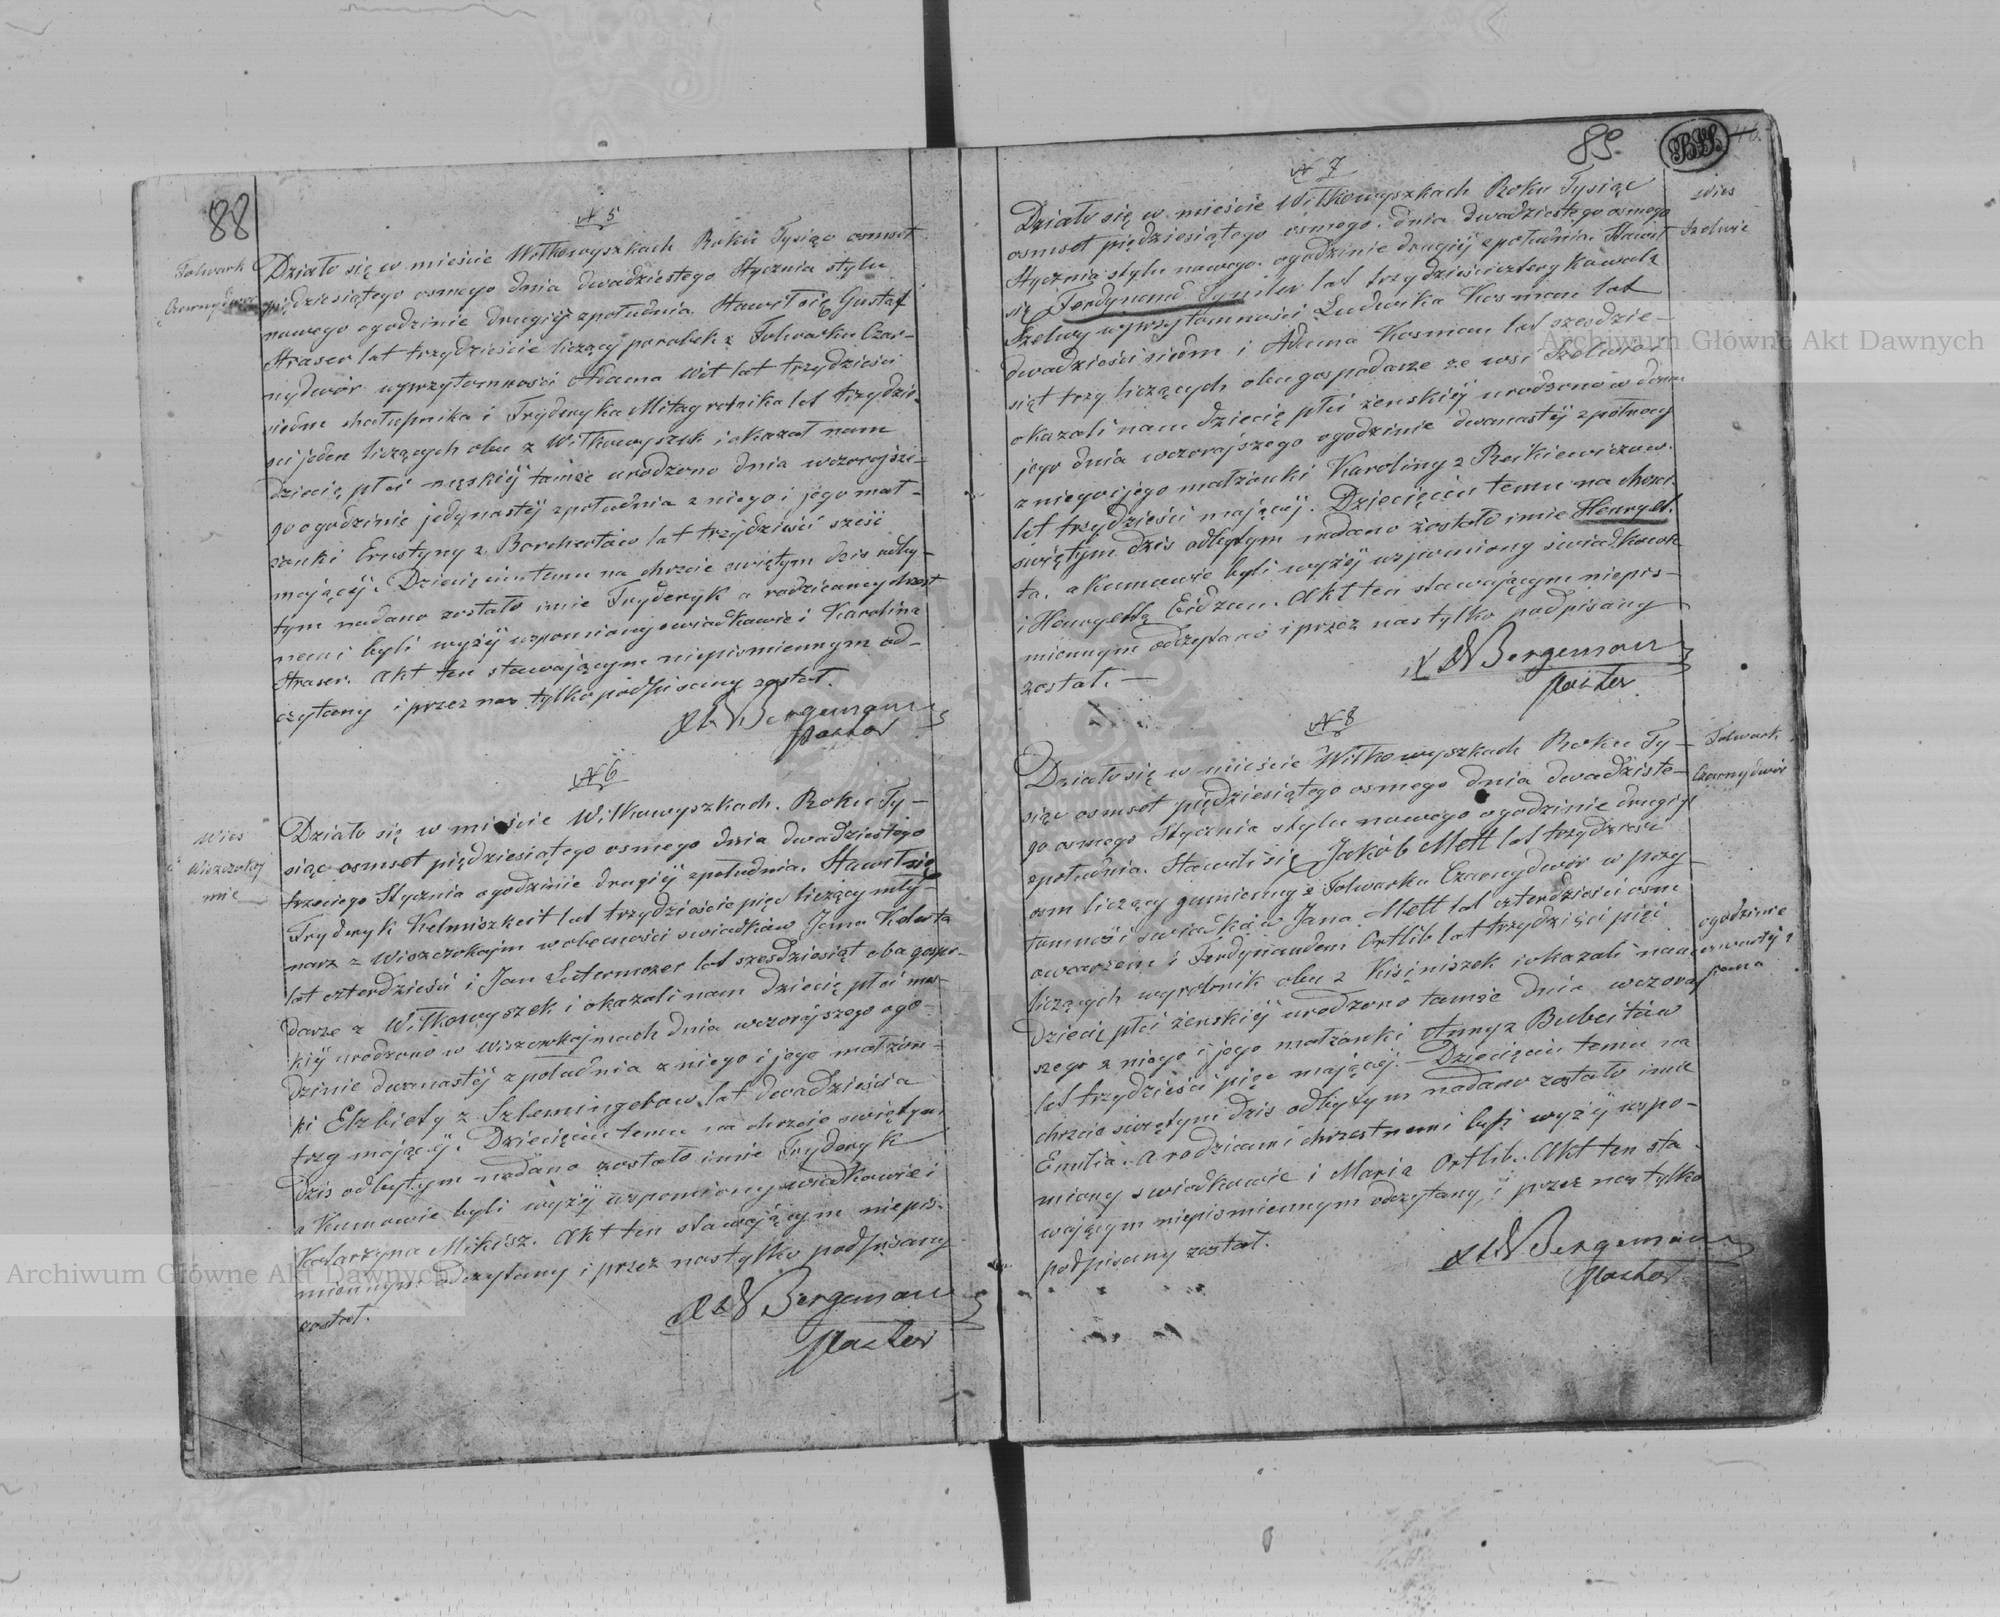 88
N 5
Folwark
Czarnydwór
Działo się w mieście Wiłkowyszkach Roku Tysiąc osmset
piędziesiątego osmego dnia dwadziestego Stycznia stylu
nowego ogodzinie drugiéj zpołudnia. Stawił się Gustaf
Straser lat trzydzieście liczący parobek z Folwarku Czar-
nydwór wprzytomności Adama Wit lat trzydzieści
siedm chałupnika i Fryderyka Mitzyg rolnika lat trzydzie-
sci jeden liczących obu z Wiłkowyszek i okazał nam
dziecię płci męskiéj tamże urodzono dnia wczorajsze-
go ogodzinie jedynastéj zpołudnia z niego i jego mał-
żonki Ernstyny z Borchertów lat trzydzieści sześć
mającéj. Dziecięciu temu na chrzcie świętym dziś odby-
tym nadano zostało imie Fryderyk a rodzicamy chrzest
nemi byli wyżéj wspomniony swiadkowie i Karolina
Straser. Akt ten stawającym niepismiennym od-
czytany i przez nas tylko podpisany został.
Bergemann
Pastor
N 6
Wies
Wiszczokoj
mie
Działo się w mieście Wiłkowyszkach. Roku Ty-
siąc osmset piędziesiątego osmego dnia dwadziestego
trzeciego Stycznia ogodzinie drugiéj zpołudnia. Stawił się
Fryderyk Kelmiszkeit lat trzydzieście pięc liczący mły-
narz z Wiszczokojm wobecności swiadków Jana Kolesta
lat czterdzieści i Jan Lutermozer lat szesdziesiąt oba gospo-
darze z Wiłkowyszek i okazali nam dziecię płci męs-
kiéj urodzono w Wiszczokojmach dnia wczorajszego ogo-
dzinie dwanastéj zpołudnia z niego i jego małżon-
ki Elzbiety z Szlemingerow lat dwadzieścia
trzy mającéj. Dziecięciu temu na chrzcie świętym
dzis odbytym nadano zostało imie Fryderyk
a Kumowie byli wyżéj wspomniony swiadkowie i
Katarzyna Mikisz. Akt ten stawającym niepis-
miennym odczytany i przez nas tylko podpisany
został.
Bergemann
Pastor
89.
N 7
Wies
Szelwie
Działo się w mieście Wiłkowyszkach Roku Tysiąc
osmset piędziesiątego osmego. dnia dwadziestego osmego
Stycznia stylu nowego. ogodzinie drugiéj zpołudnia. Stawił
się Ferdynand lat trzydzieści cztery kowal z
Szelwy wprzytomności Ludwika Kosman lat
dwadzieści siedm i Adama Kosman lat szesdzie-
siąt trzy liczących obu gospodarze ze wsi Szelwiow
okazali nam dziecię płci żenskiéj urodzono w domu
jego dnia wczorajszego ogodzinie dwanastéj zpółnocy
z niego i jego małżonki Karoliny z Reikiewiczow.
lat trzydzieści mającéj. Dziecięciu temu na chrzci
świętym dzis odbytym nadano zostało imie Henryet.
ta. a Kumowie byli wyżéj wspomniony świadkowie
i Henryetta Eidzun. Akt ten stawającym niepis-
miennym odczytano i przez nas tylko podpisany
został. —
Bergemann
Pastor
N 8
Folwark
Czarnydwór
Działo się w mieście Wiłkowyszkach Roku Ty-
siąc osmset piędziesiątego osmego dnia dwadzieste-
go osmego Stycznia stylu nowego ogodzinie drugiéj
zpołudnia. Stawił się Jakób Mett lat trzydzieści
osm liczący gumienny z Folwarku Czarnydwór w przy-
tomności swiadków Jana Mett lat czterdzieści osm
owczarzem i Ferdynandem Ortlib lat trzydzieści pięć
liczących wyrobnik obu z Kisiniszek i okazali nam
ogodzinie
czwartéj z
rana
dziecię płci żenskiéj urodzono tamże dnia wczoraj
szego z niego i jego małżonki Anny z Bubeitów
lat trzydzieści pięc mającéj. Dziecięciu temu na
chrzcie świętym dzis odbytym nadano zostało imie
Emilia. a rodzicami chrzestnemi byli wyżéj wspo-
miony swiadkowie i Maria Ortlib. Akt ten sta-
wającym niepismiennym odczytany, i przez nas tylko
podpisany został.
Bergemann
Pastor
Archiwum Główne Akt Dawnych
Archiwum Główne Akt Dawnych